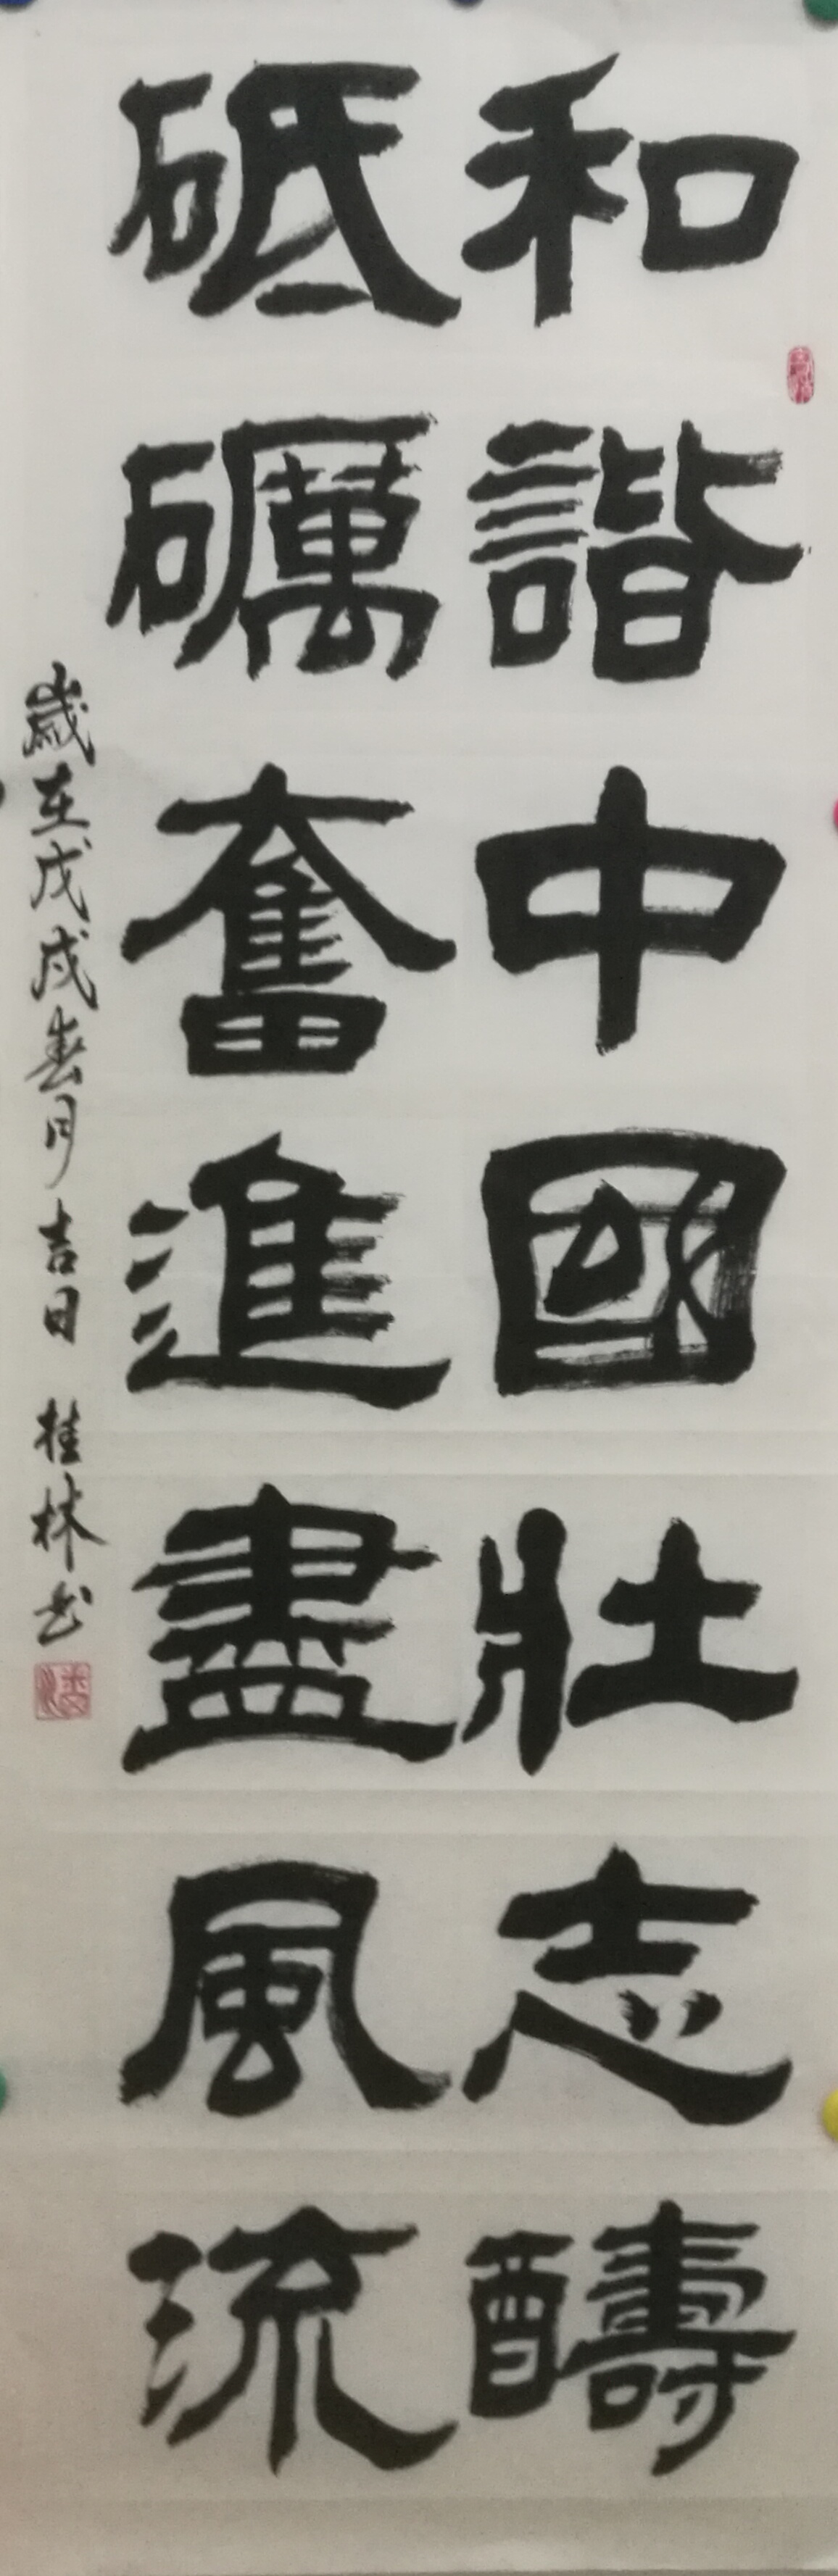 和諧中國壯志醻
砥礪奮進盡風流
歲在戊戌春月吉日 桂林书